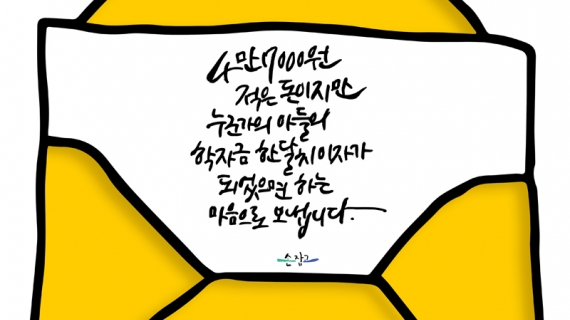 4만7000원
적은 돈이지만
누군가의 아들의
학자금 한달치 이자가
되었으면 하는
마음으로 보냅니다.
손잡고